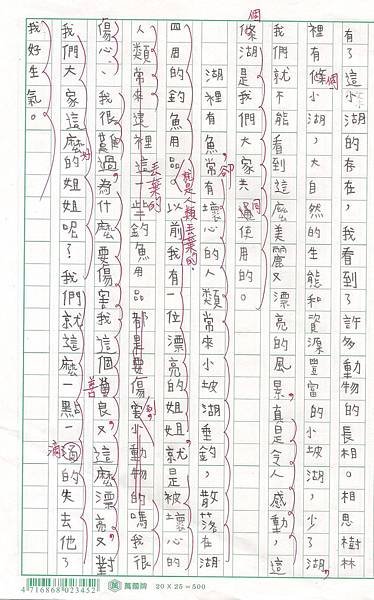 有了這小湖的存在，我看到了許多動物的長相。相思樹林
裡有條小湖，大自然的生能和資源豐富的小坡湖，少了湖，
個
我們就不能看到這麼美麗又漂亮的風景，真是令人感動，這
條湖是我們大家共通使用的。
個
同
湖裡有魚，常有壞心的人類常來小坡湖垂釣，散落在湖
卻
四周的釣魚用品。以前我有一位漂亮的姐姐，就是被壞心
就是人類丟棄的
人類常來這裡這一些釣魚用品都是要傷害小動物的嗎我很
丟棄的
傷心、我很難過，為什麼要傷害我這個良又這麼漂亮又對
善
我們大家這麼的姐姐呢？我們就這麼一點一過的失去他了
好
滴
我好生氣。
4716868023452
萬國牌 20×25=500